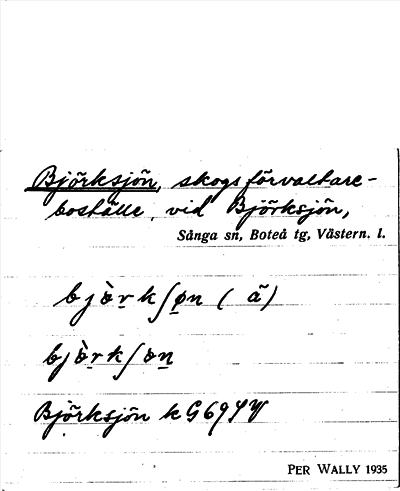 Björksjön, skogsförvaltare-
boställe, vid Björksjön,
Sånga sn, Boteå tg, Västern. l.
bjò̱rkʃo̱n ( ã )
bjò̱rkʃɷṉ
Björksjön k G69
PER WALLY 1935